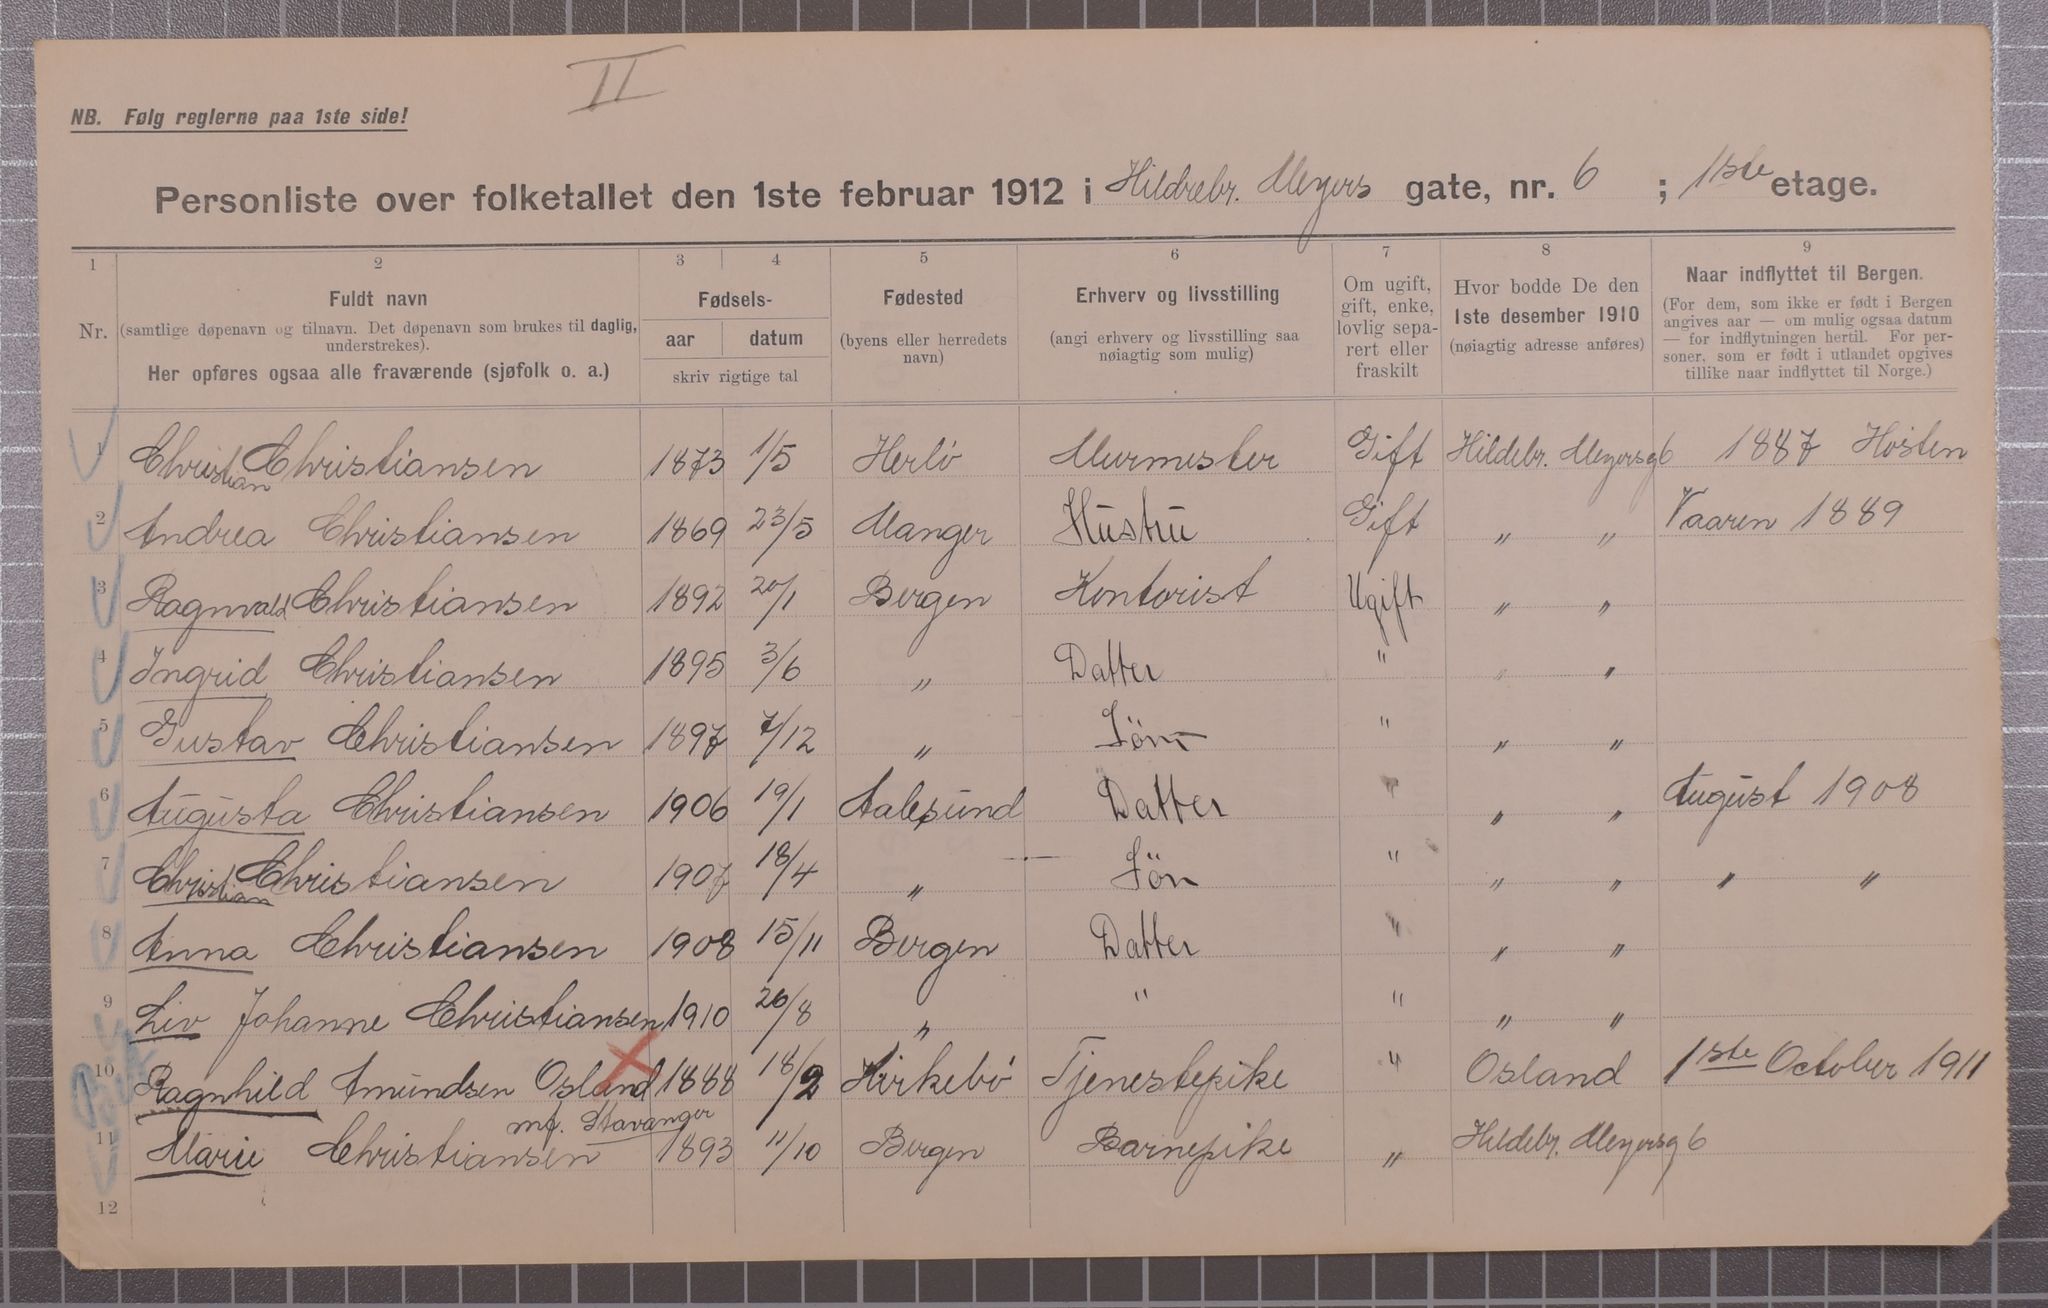 II
NB. Følg reglerne paa 1ste side!
Personliste over folketallet den 1ste februar 1912 i Hildrebr. Meyers gate, nr. 6 ; 1ste etage.
1 2 3 4 5 6 7 8 9
Nr.
Fuldt navn
(samtlige døpenavn og tilnavn. Det døpenavn som brukes til daglig, understrekes).
Her opføres ogsaa alle fraværende (sjøfolk o. a.)
Fødsels-
aar datum
skriv rigtige tal
Fødested
(byens eller herredets navn)
Erhverv og livsstilling
(angi erhverv og livsstilling saa nøiagtig som mulig)
Om ugift, gift, enke, lovlig sepa-rert eller fraskilt
Hvor bodde De den 1ste desember 1910
(nøiagtig adresse anføres)
Naar indflyttet til Bergen.
(For dem, som ikke er født i Bergen angives aar — om mulig ogsaa datum — for indflytningen hertil. For per-soner, som er født i utlandet opgives tillike naar indflyttet til Norge.)
1 Christian Christiansen 1873 1/5 Herlö Murmester Gift Hildebr. Meyersg 6 1887 Hösten
2 Andrea Christiansen 1869 23/5 Manger Hustru Gift " " Vaaren 1889
3 Ragnvald Christiansen 1892 20/1 Bergen Kontorist Ugift " "
4 Ingrid Christiansen 1895 3/6 " Datter " " "
5 Gustav Christiansen 1897 7/12 " Sön " " "
6 Augusta Christiansen 1906 19/1 Aalesund Datter " " " August 1908
7 Christian Christiansen 1907 18/4 " Sön " " " " "
8 Anna Christiansen 1908 15/11 Bergen Datter " " "
9 Liv Johanne Christiansen 1910 26/8 " " " " "
10 Ragnhild Amundsen Osland 1888 18/2 Kirkebö Tjenestepike " Osland 1ste October 1911
mf. Stavanger
11 Marie Christiansen 1893 11/10 Bergen Barnepike " Hildebr. Meyersg 6
12